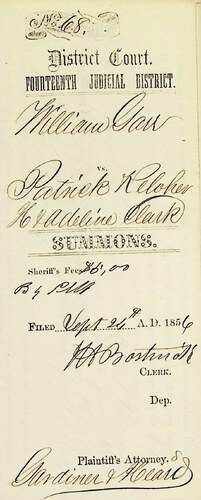 No. 68.
District Court.
FOURTEENTH JUDICIAL DISTRICT.
William Garr
vs.
Patrick Keloher
& Adeline Clark
SUMMONS.
Sheriff's Fees $5,00
By
FILED Sept 24th A. D. 1856
CLERK.
Dep.
Plaintiff's Attorneys
Gardiner & Heard